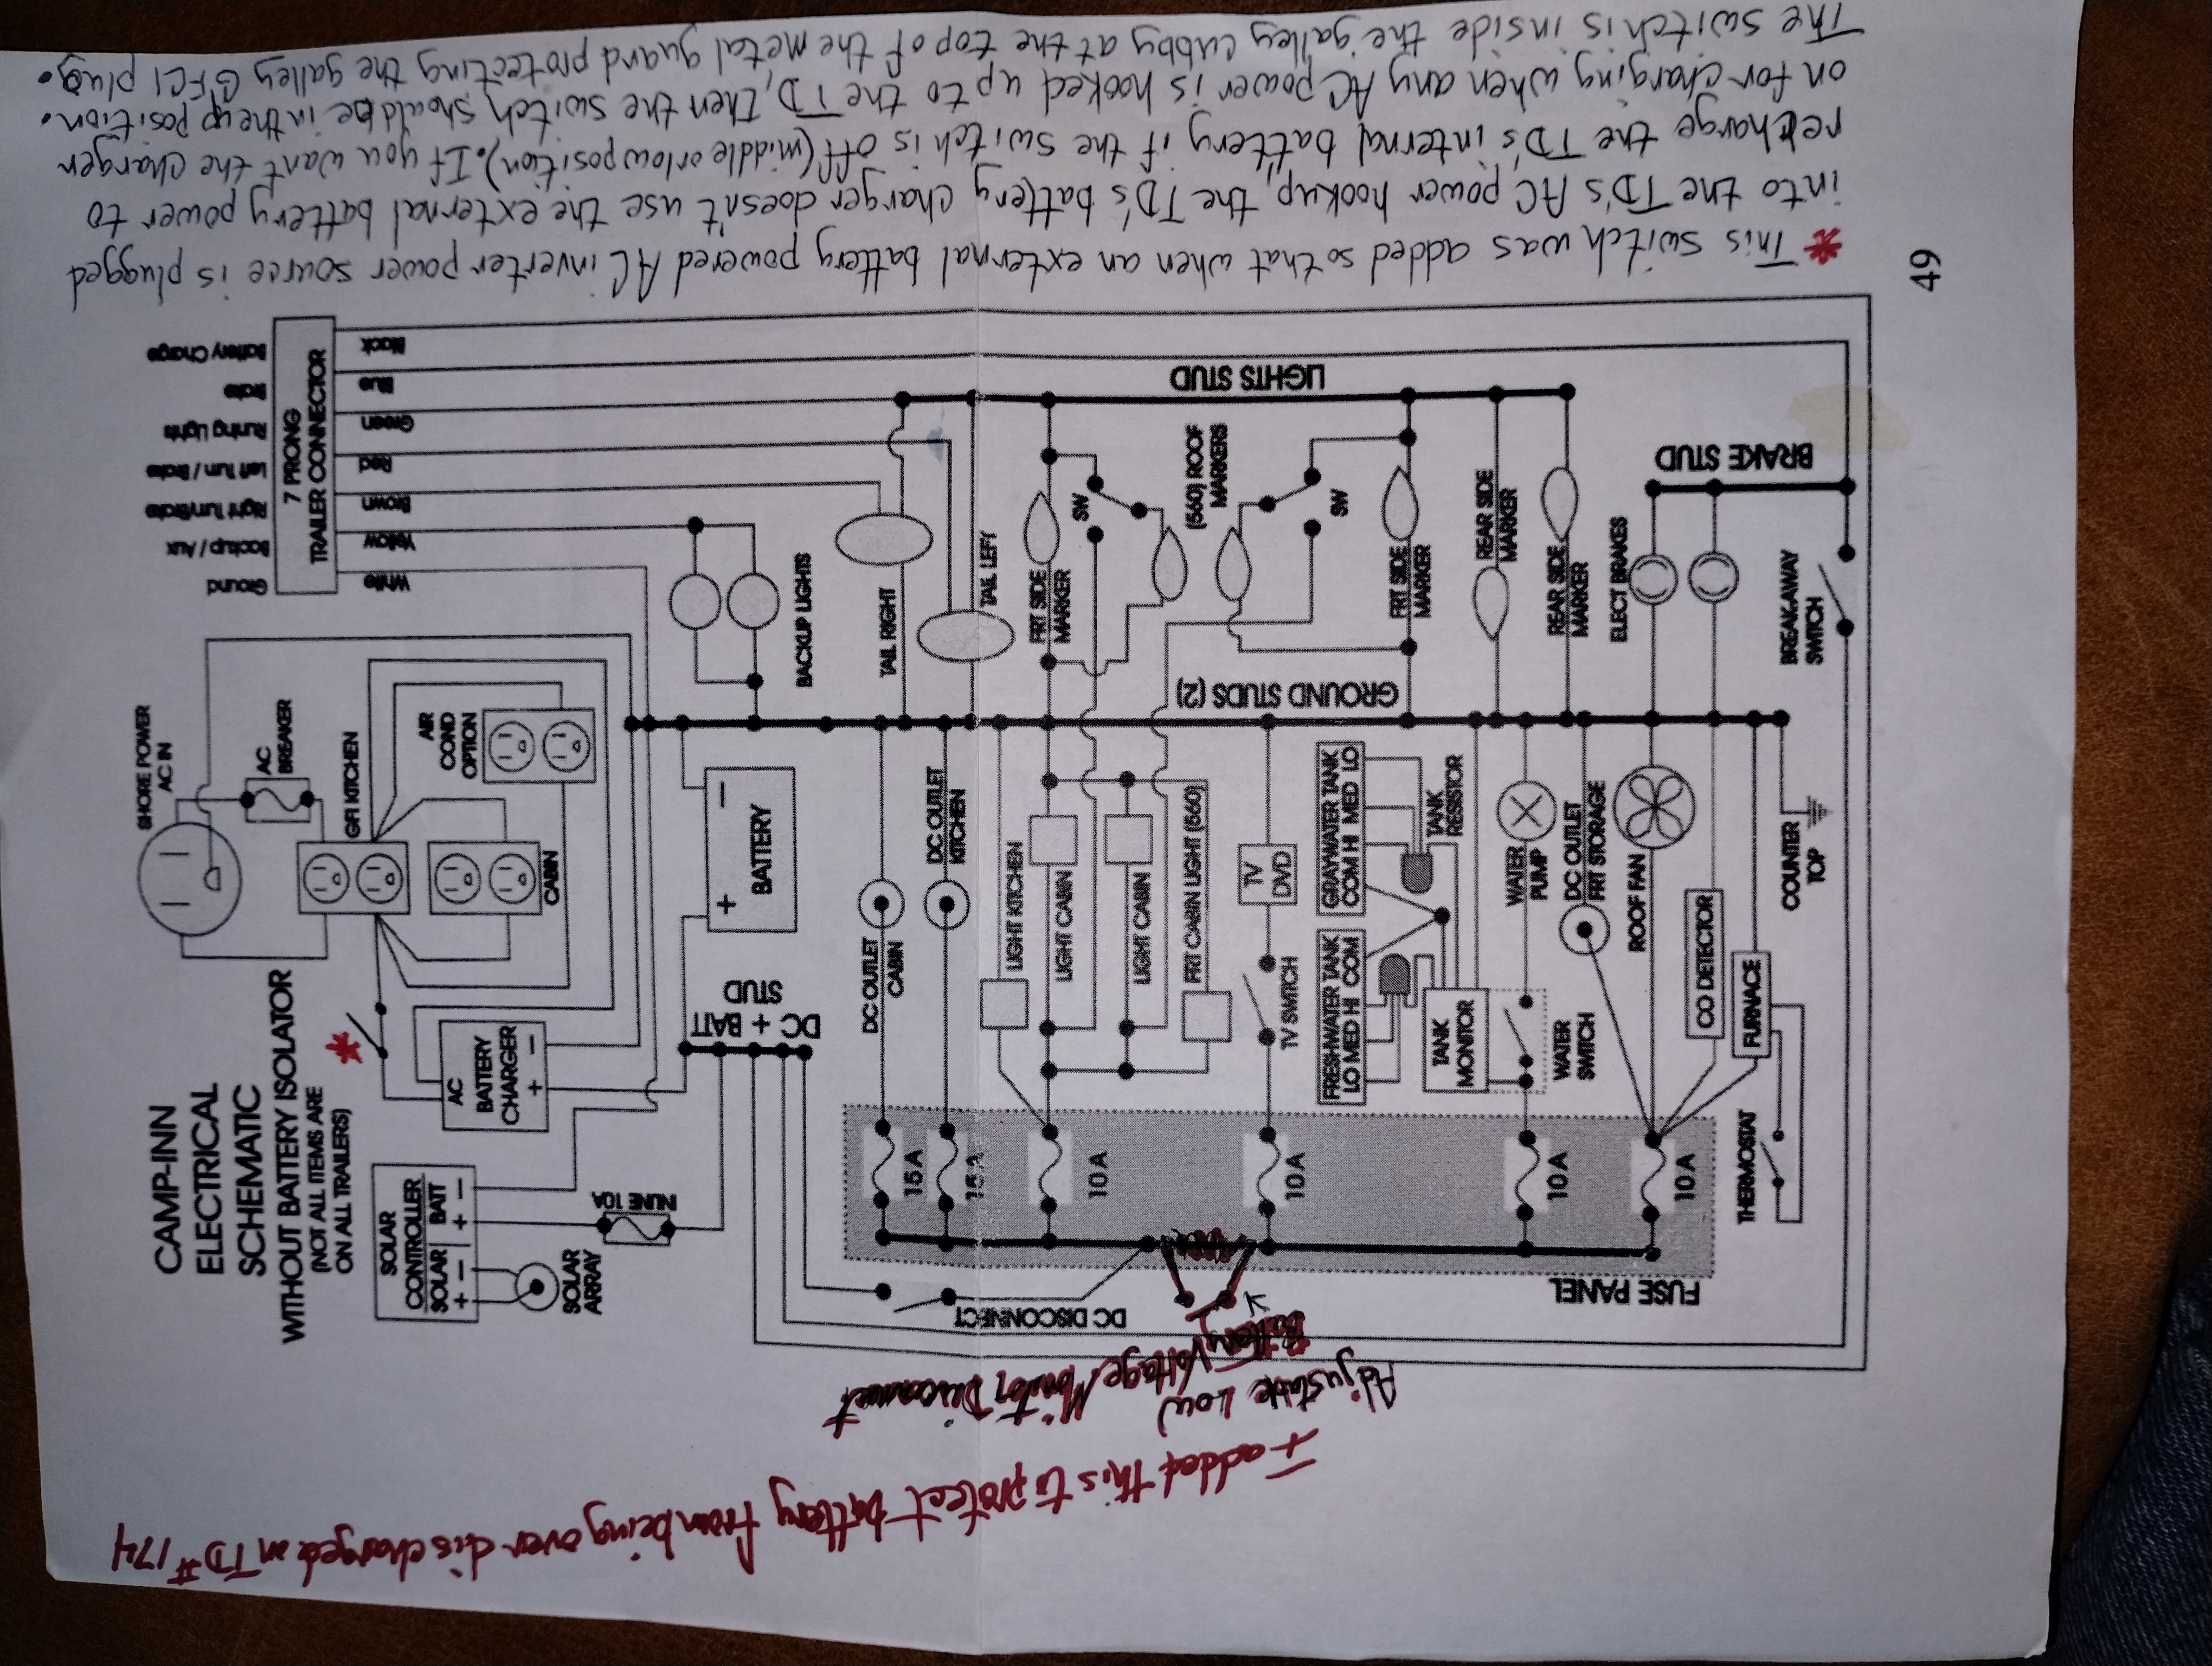 CAMP-INN
ELECTRICAL
SCHEMATIC
WITHOUT BATTERY ISOLATOR
(NOT ALL ITEMS ARE
ON ALL TRAILERS)
SHORE POWER
AC IN
AC
BREAKER
GFI KITCHEN
AIR
COND
OPTION
CABIN
*
AC
BATTERY
CHARGER
+ -
SOLAR
CONTROLLER
SOLAR BATT
+ - + -
SOLAR
ARRAY
INLINE 10A
BATTERY
+ -
DC + BATT
STUD
7 PRONG
TRAILER CONNECTOR
Battery Charge
Brake
Runing Lights
Left Turn / Brake
Right Turn/Brake
Backup / Aux
Ground
Black
Blue
Green
Red
Brown
Yellow
White
BACKUP LIGHTS
TAIL RIGHT
TAIL LEFT
FRT SIDE
MARKER
SW
(560) ROOF
MARKERS
SW
FRT SIDE
MARKER
REAR SIDE
MARKER
REAR SIDE
MARKER
ELECT BRAKES
BREAK-AWAY
SWITCH
LIGHTS STUD
BRAKE STUD
GROUND STUDS (2)
DC OUTLET
CABIN
DC OUTLET
KITCHEN
LIGHT KITCHEN
LIGHT CABIN
LIGHT CABIN
FRT CABIN LIGHT (560)
TV
DVD
TV SWITCH
GRAYWATER TANK
COM HI MED LO
TANK
RESISTOR
FRESHWATER TANK
LO MED HI COM
TANK
MONITOR
WATER
PUMP
WATER
SWITCH
DC OUTLET
FRT STORAGE
ROOF FAN
CO DETECTOR
FURNACE
COUNTER
TOP
THERMOSTAT
15A
15A
10A
10A
10A
10A
DC DISCONNECT
FUSE PANEL
Adjustable Low
Battery Voltage Monitor Disconnect
I added this to protect battery from being over discharged on TD #174
49
* This switch was added so that when an external battery powered AC inverter power source is plugged
into the TD's AC power hookup, the TD's battery charger doesn't use the external battery power to
recharge the TD's internal battery if the switch is off (middle or low position). If you want the charger
on for charging when any AC power is hooked up to the TD, then the switch should be in the up position.
The switch is inside the galley cubby at the top of the metal guard protecting the galley GFCI plug.